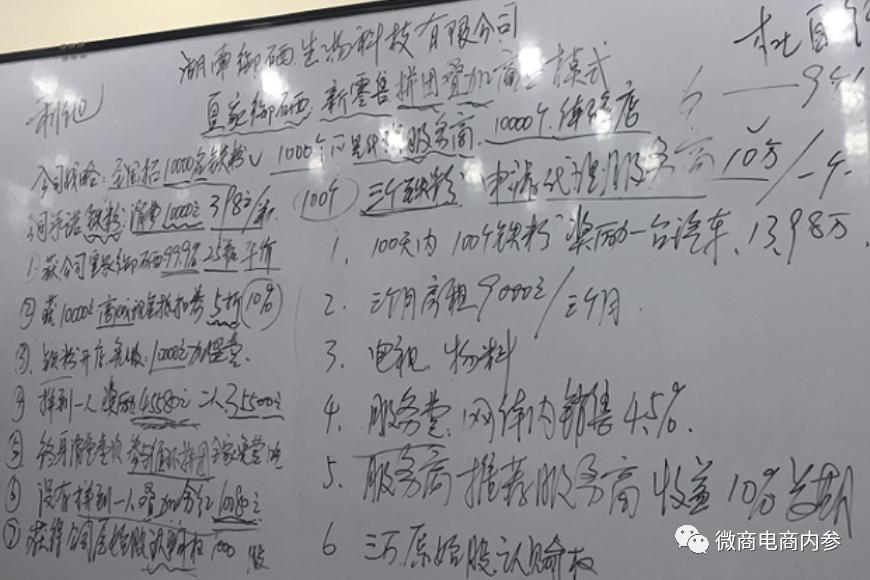 湖南御硒生物科技有限公司
皇家御硒 新零售拼团叠加商业模式
利他
公司战略:全国招10000名铁粉 1000个 代理服务商 10000个体验店
公司承诺铁粉:消费10000元 398元/
①获公司皇家御硒99.9% 25瓶平价
②获10000元 现金抵扣券5折 10%
③铁粉开店免收10000元加盟费
④拼到一人奖励4550元 二人35500元
⑤终身 参与循环拼团
⑥没有拼到一人叠加分红 元
⑦获得公司原始股认购权1000股
100个 三个铁粉 申请代理服务商10万/一个
1. 100天内100个铁粉奖励一台汽车、13.98万
2. 三个月房租9000元/三个月
3. 电视 物料
4. 服务费:网体内销售4.5%
5. 服务商推荐服务商收益10%
6 三万原始股认购权
6——9个
微商电商内参